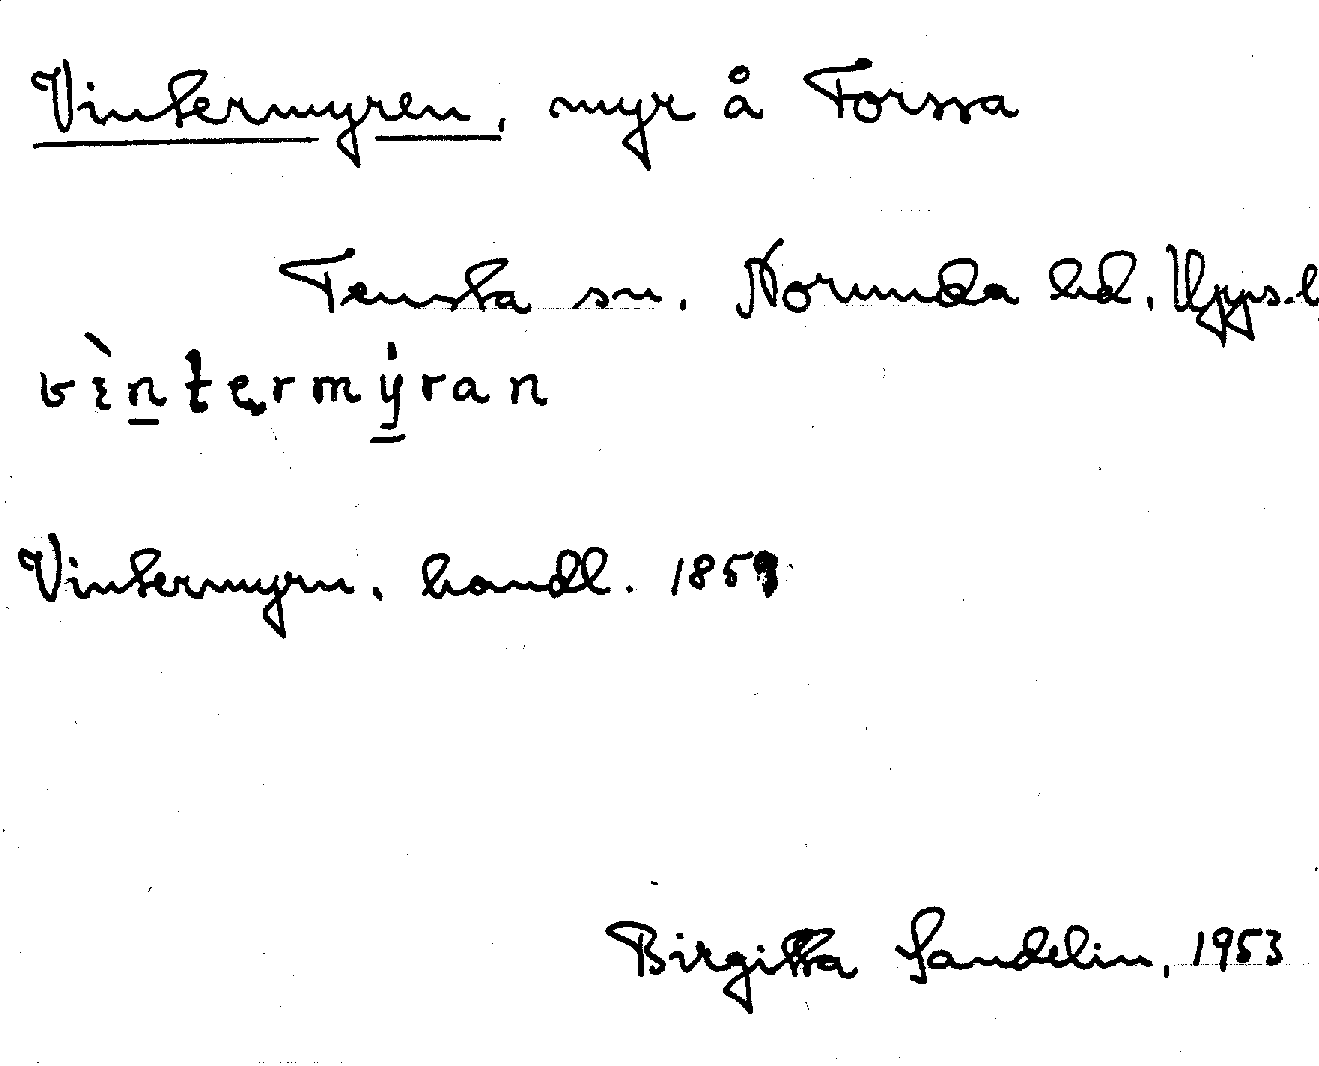 Vintermyren, myr å Forssa
Tensta sn. Norunda hd, Upps. l
vìntermyran
Vintermyrn, handl. 1859
Birgitta Sandelin, 1953